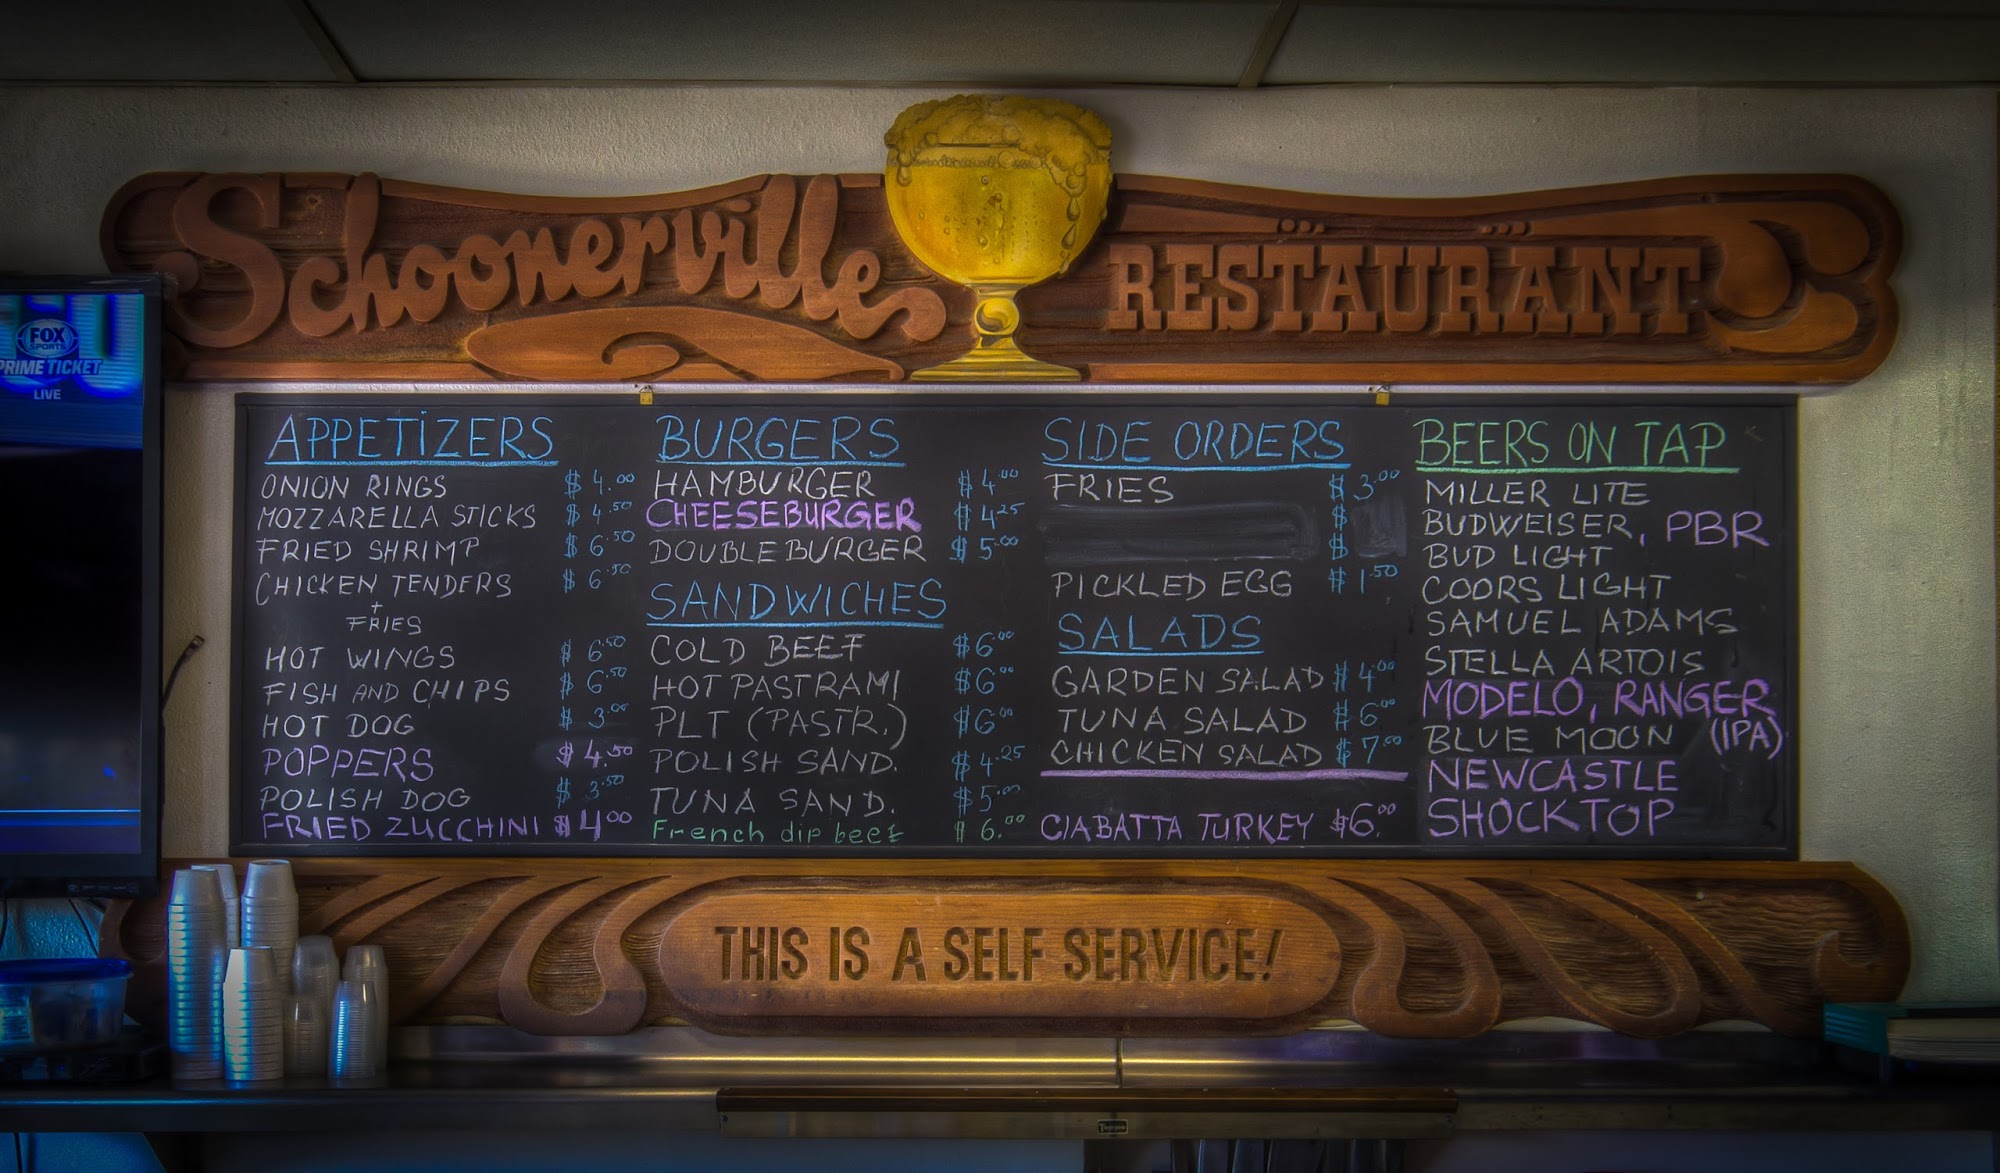 Schoonerville RESTAURANT
FOX
SPORTS
PRIME TICKET
LIVE
APPETIZERS
ONION RINGS $4.00
MOZZARELLA STICKS $4.50
FRIED SHRIMP $6.50
CHICKEN TENDERS $6.50
+
FRIES
HOT WINGS $6.50
FISH AND CHIPS $6.50
HOT DOG $3.00
POPPERS $4.50
POLISH DOG $3.50
FRIED ZUCCHINI $4.00
BURGERS
HAMBURGER $4.00
CHEESEBURGER $4.25
DOUBLE BURGER $5.00
SANDWICHES
COLD BEEF $6.00
HOT PASTRAMI $6.00
PLT (PASTR.) $6.00
POLISH SAND. $4.25
TUNA SAND. $5.00
French dip beef $6.00
SIDE ORDERS
FRIES $3.00
$
$
PICKLED EGG $1.50
SALADS
GARDEN SALAD $4.00
TUNA SALAD $6.00
CHICKEN SALAD $7.00
CIABATTA TURKEY $6.00
BEERS ON TAP
MILLER LITE
BUDWEISER, PBR
BUD LIGHT
COORS LIGHT
SAMUEL ADAMS
STELLA ARTOIS
MODELO, RANGER
BLUE MOON (IPA)
NEWCASTLE
SHOCKTOP
THIS IS A SELF SERVICE!